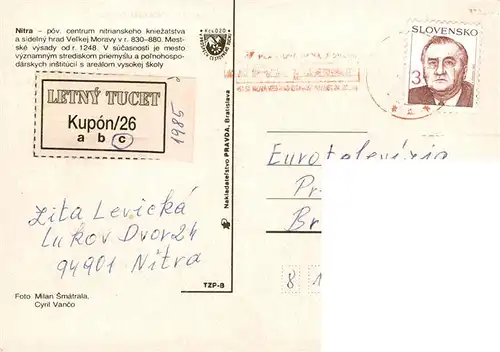 Nitra – pôv. centrum nitrianskeho kniežatstva
a sídelný hrad Veľkej Moravy v r. 830–880. Mest-
ské výsady od r. 1248. V súčasnosti je mesto
významným strediskom priemyslu a poľnohospo-
dárskych inštitúcií s areálom vysokej školy
LETNÝ TUCET
Kupón/26
a b c
1985
Zita Levická
Lukov Dvor 24
94901 Nitra
Foto Milan Šmátrala,
Cyril Vančo
Nakladateľstvo PRAVDA, Bratislava
TZP-B
SLOVENSKO
3
Eurotelevízia
Pr
Br
8 1